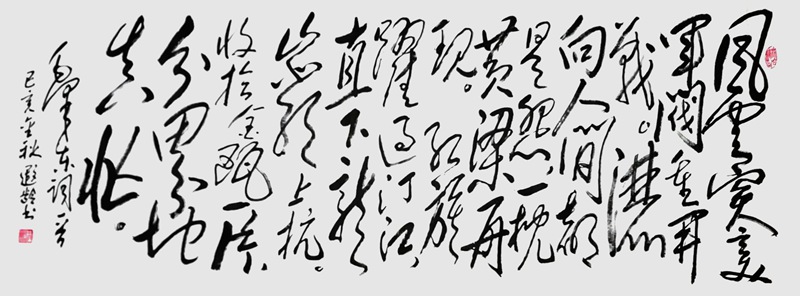 風雲突變
軍閥重開
戰。灑
向人間都
是怨，一枕
黄粱再
現。紅旗
躍過汀江，
直下龍
岩上杭。
收拾金甌一片，
分田分地
真忙。
毛澤東詞一首
己亥金秋遐齡书